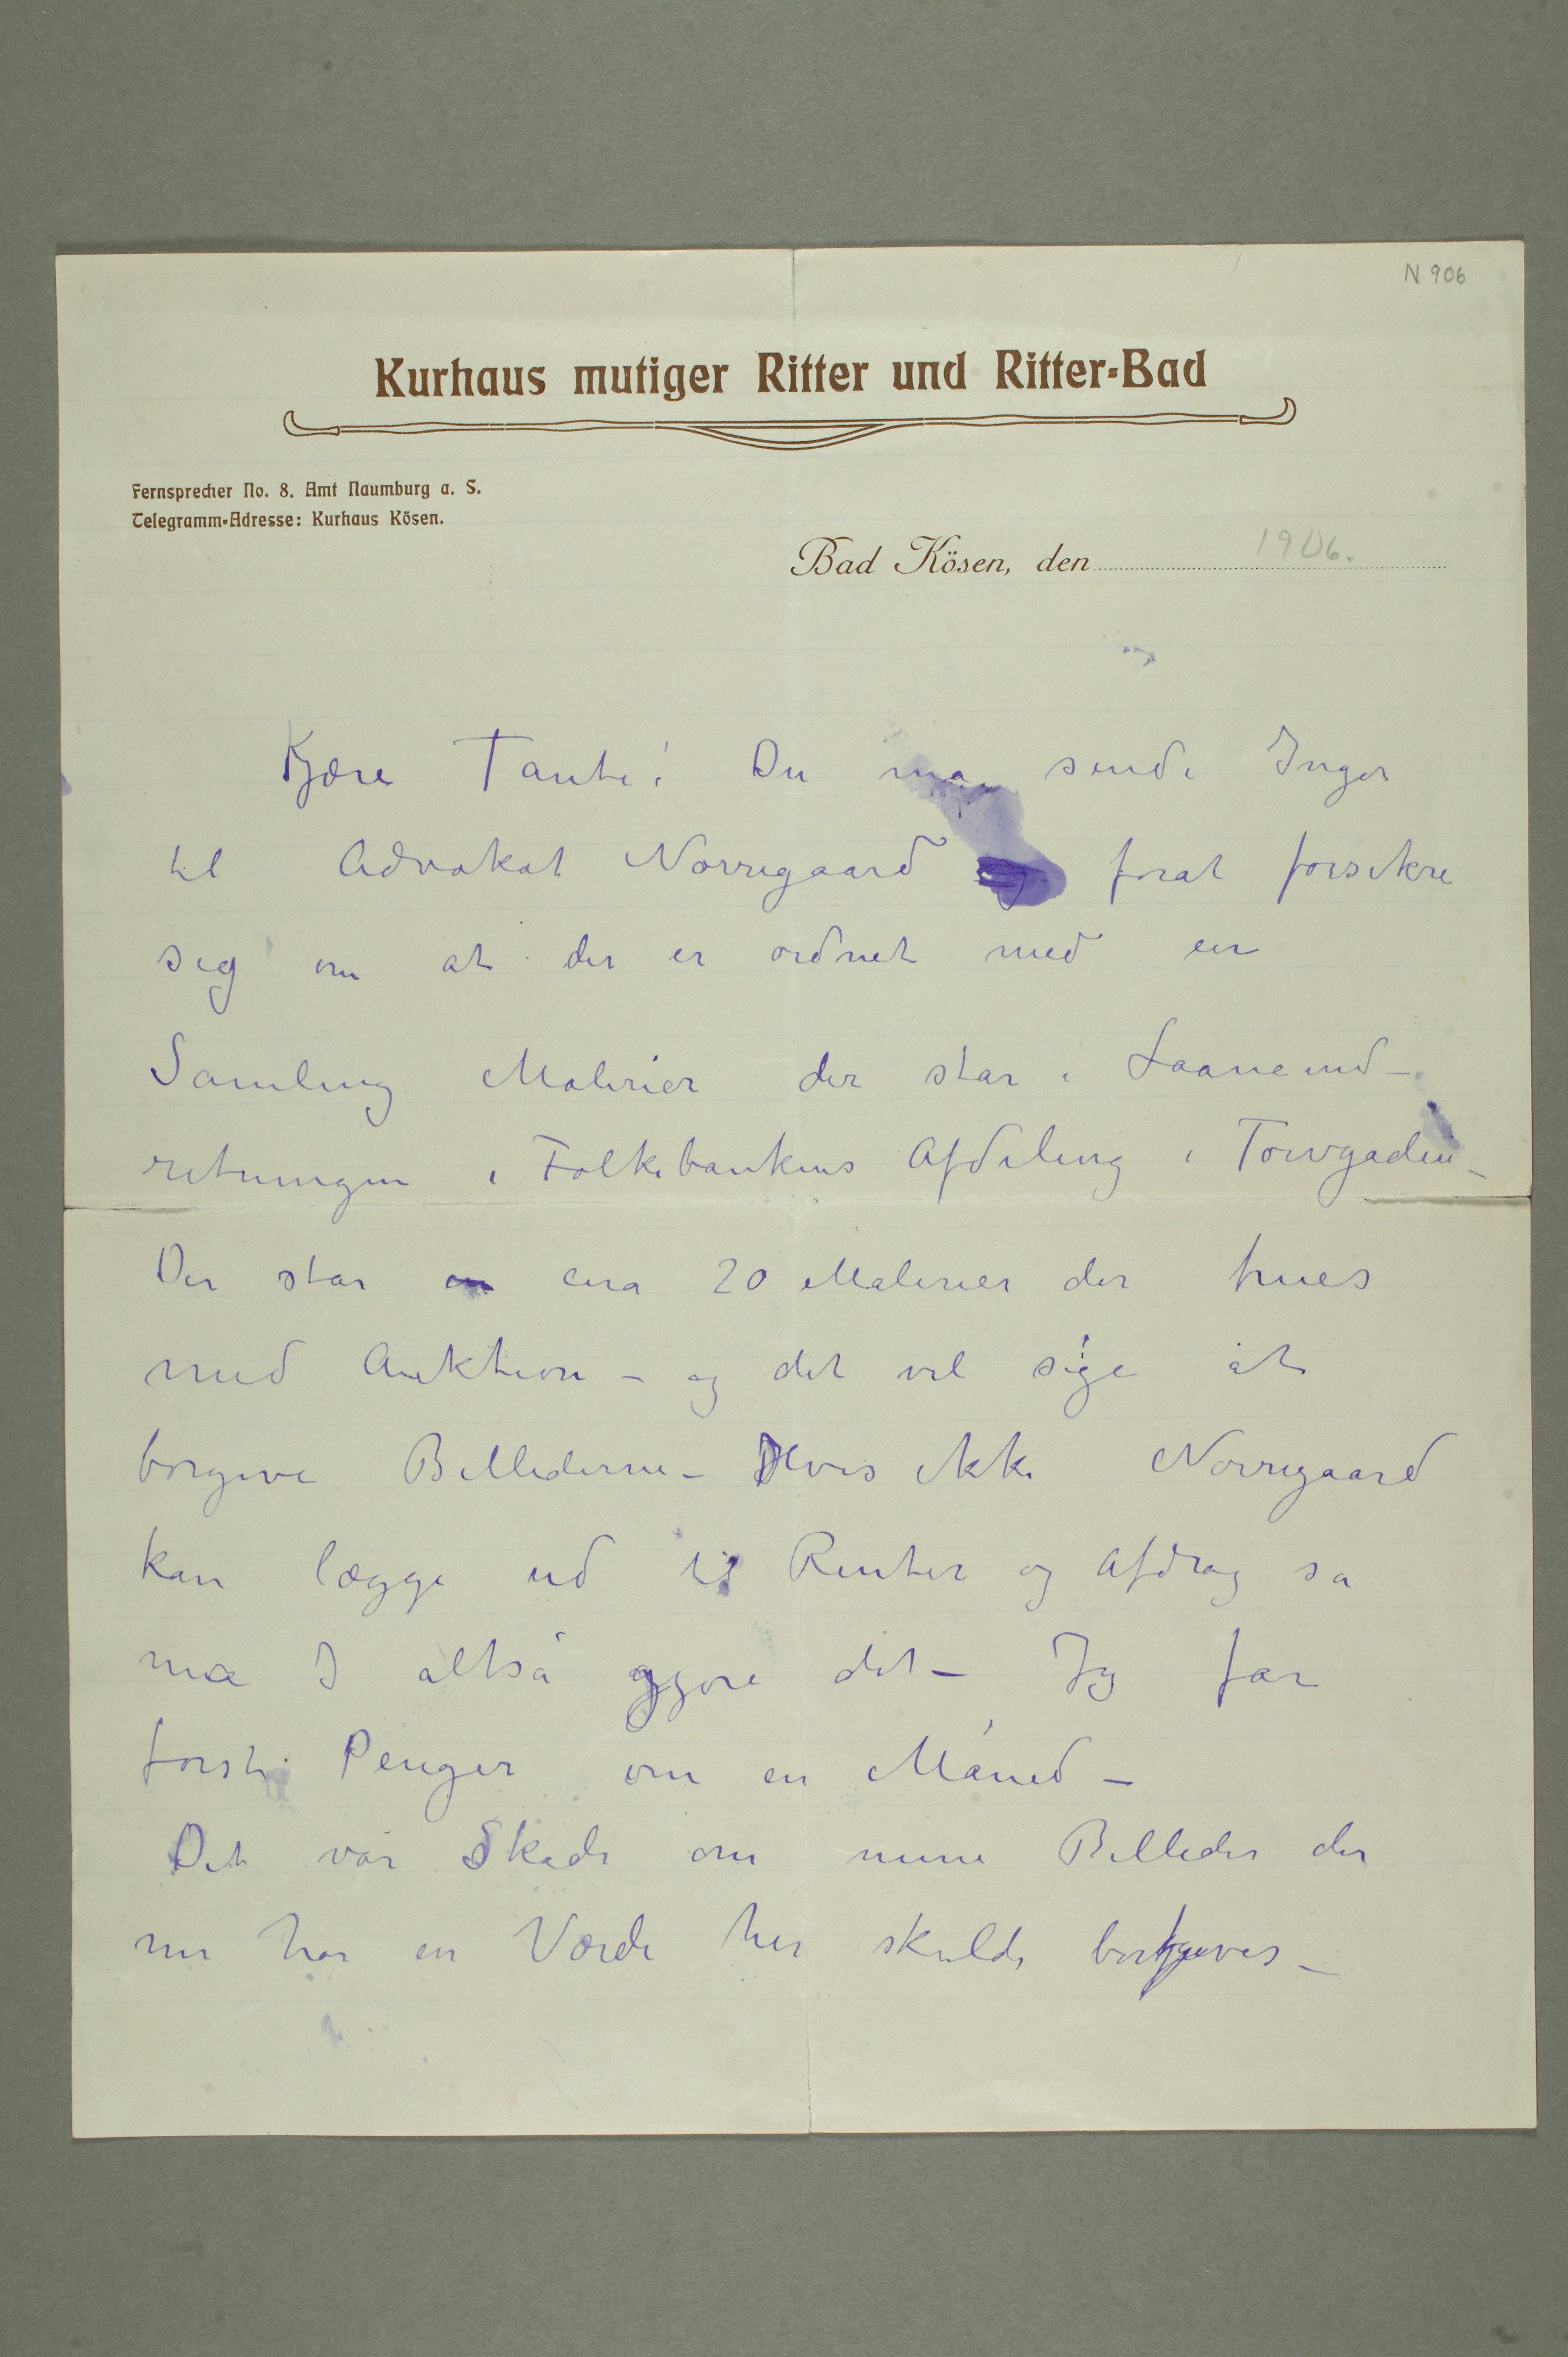 N 906
Kurhaus mutiger Ritter und Ritter-Bad
Fernsprecher No. 8. Amt Naumburg a. S.
Telegramm-Adresse: Kurhaus Kösen.
Bad Kösen, den 1906.
Kjære Tante! Du maa sende Inger
til Advokat Nørregaard forat forsikre
sig om at der er ordnet med en
Samling Malerier der står i Laaneind-
retningen i Folkebankens Afdeling i Torvgaden –
Der står cira 20 Malerier der trues
med Auktion – og det vil sige at
borgive Billederne – Hvis ikke Nørregaard
kan lægge ud til Renter og Afdrag så
må I altså gjøre det – Jeg får
først Penger om en Måned –
Det var Skade om mine Billeder der
nu har en Værdi her skulde bortgives –